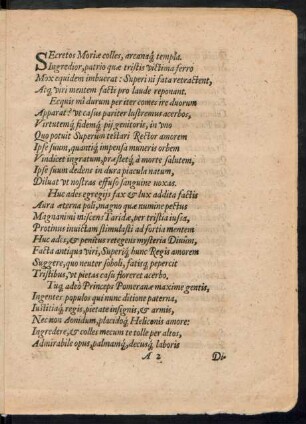 SEcretos Moriæ colles, arcanaq́; templa.
Ingredior, patrio quæ tristis victima ferro
Mox equidem imbuerat: Superi ni fata retractent,
Atq́; viri mentem facti pro laude reponant.
Ecquis mî durum per iter comes ire duorum
Apparat? vt casus pariter lustremus acerbos,
Virtutemq́; fidemq́; pij genitoris, in vno
Quo potuit Superûm testari Rector amorem
Ipse suum, quantiq́; impensa muneris orbem
Vindicet ingratum, præstetq́; à morte salutem,
Ipse suum dedens in dura piacula natum,
Diluat vt nostras effuso sanguine noxas.
Huc ades egregijs fax & lux addita factis
Aura æterna poli, magno quæ numine pectus
Magnanimi miscens Taridæ, per tristia iussa,
Protinus inuictam stimulasti ad fortia mentem
Huc adsis, & penitus retegens mysteria Diuûm,
Facta antiqua viri, Superiq́; hunc Regis amorem
Suggere, quo neuter soboli, satisq́; pepercit
Tristibus, vt pietas casu floreret acerbo.
Tuq́; adeò Princeps Pomeranæ maxime gentis,
Ingentes populos qui nunc ditione paterna,
Iustitiaq́; regis, pietate insignis, & armis,
Nec non Aonidum, placidoq́; Heliconis amore:
Ingredere, & colles mecum te tolle per altos,
Admirabile opus, palmamq́;, decusq́; laboris
A 2 Di-